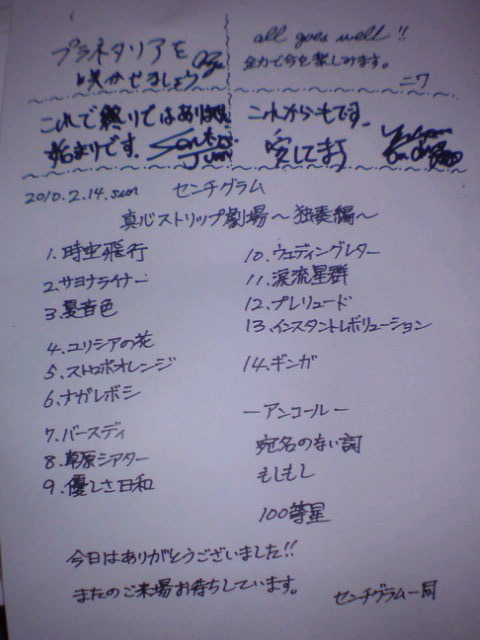 プラネタリアを
咲かせましょう
all goes well!!
全力で今を楽しみます。
ニワ
これで終りではありません
始まりです。
これからもです。
愛してます
2010.2.14.sun センチグラム
真心ストリップ劇場〜独奏編〜
1.時空飛行
2.サヨナライナー
3.景音色
4.ユリシアの花
5.ストロボオレンジ
6.ナガレボシ
7.バースディ
8.草原シアター
9.優しさ日和
10.ウェディングレター
11.涙流星群
12.プレリュード
13.インスタントレボリューション
14.ギンガ
ーアンコールー
宛名のない詞
もしもし
100等星
今日はありがとうございました!!
またのご来場お待ちしています。
センチグラム一同